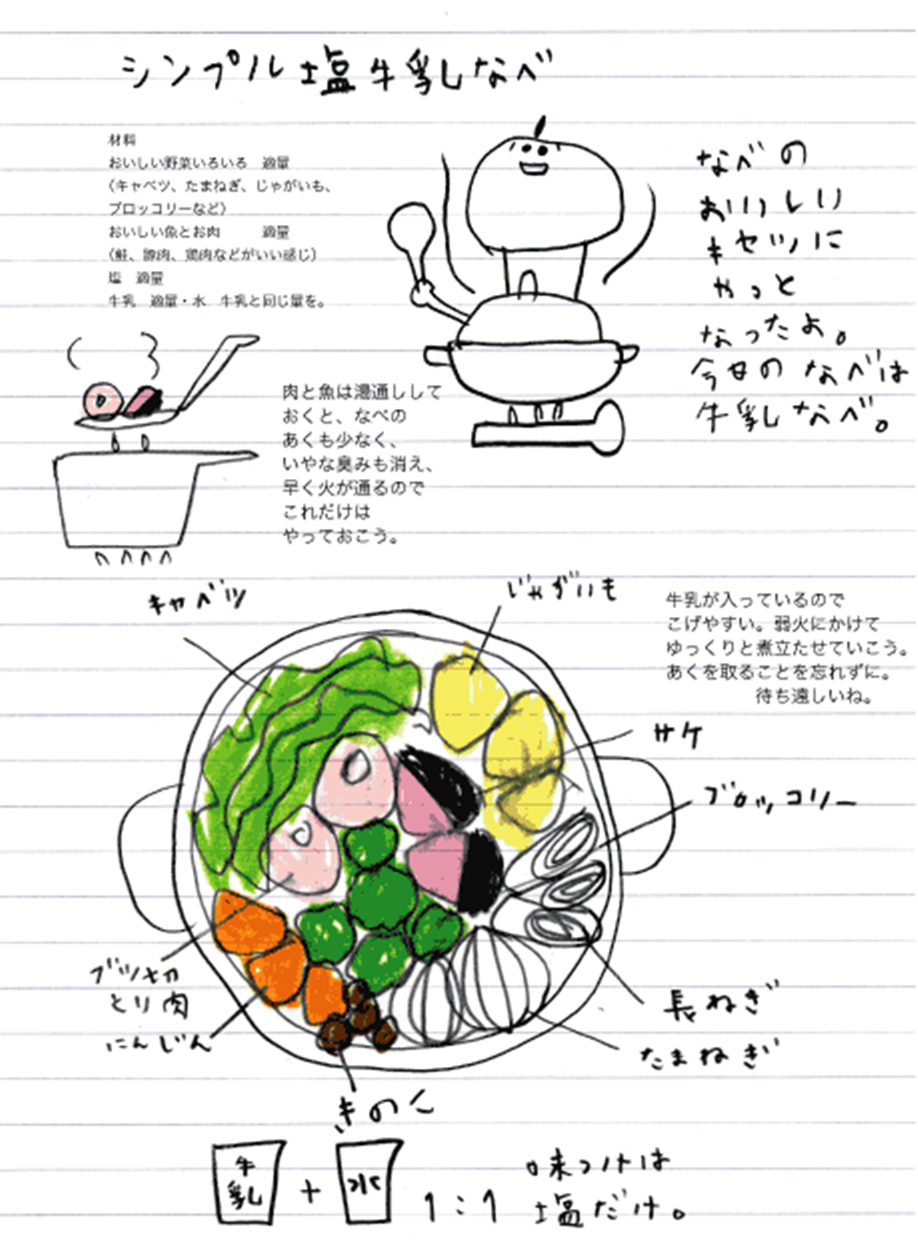 シンプル塩牛乳なべ
材料
おいしい野菜いろいろ　適量
（キャベツ、たまねぎ、じゃがいも、
ブロッコリーなど）
おいしい魚とお肉　　　適量
（鮭、豚肉、鶏肉などがいい感じ）
塩　適量
牛乳　適量・水　牛乳と同じ量を。
なべの
おいしい
キセツに
やっと
なったよ。
今日のなべは
牛乳なべ。
肉と魚は湯通しして
おくと、なべの
あくも少なく、
いやな臭みも消え、
早く火が通るので
これだけは
やっておこう。
キャベツ
じゃがいも
牛乳が入っているので
こげやすい。弱火にかけて
ゆっくりと煮立たせていこう。
あくを取ることを忘れずに。
待ち遠しいね。
サケ
ブロッコリー
ブツ切
とり肉
にんじん
長ねぎ
たまねぎ
きのこ
牛
乳
+
水
1:1
味つけは
塩だけ。